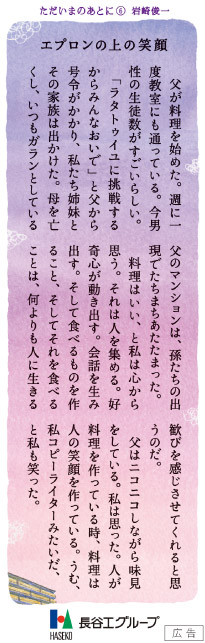 ただいまのあとに⑥ 岩崎俊一
エプロンの上の笑顔
父が料理を始めた。週に一
度教室にも通っている。今男
性の生徒数がすごいらしい。
「ラタトゥイユに挑戦する
からみんなおいで」と父から
号令がかかり、私たち姉妹と
その家族は出かけた。母を亡
くし、いつもガランとしている
父のマンションは、孫たちの出
現でたちまちあたたまった。
料理はいい、と私は心から
思う。それは人を集める。好
奇心が動き出す。会話を生み
出す。そして食べるものを作
ること、そしてそれを食べる
ことは、何よりも人に生きる
歓びを感じさせてくれると思
うのだ。
父はニコニコしながら味見
をしている。私は思った。人が
料理を作っている時、料理は
人の笑顔を作っている。うむ、
私コピーライターみたいだ、
と私も笑った。
HASEKO
長谷工グループ
広告